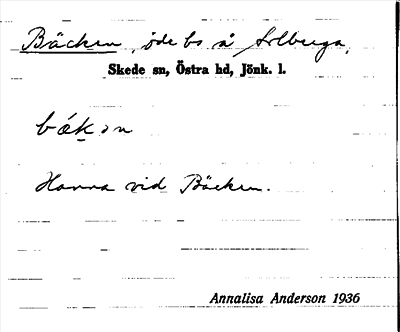 Bäcken, öde bs å Solberga,
Skede sn, Östra hd, Jönk. l.
bǽkən
Hanna vid Bäcken.
Annalisa Anderson 1936